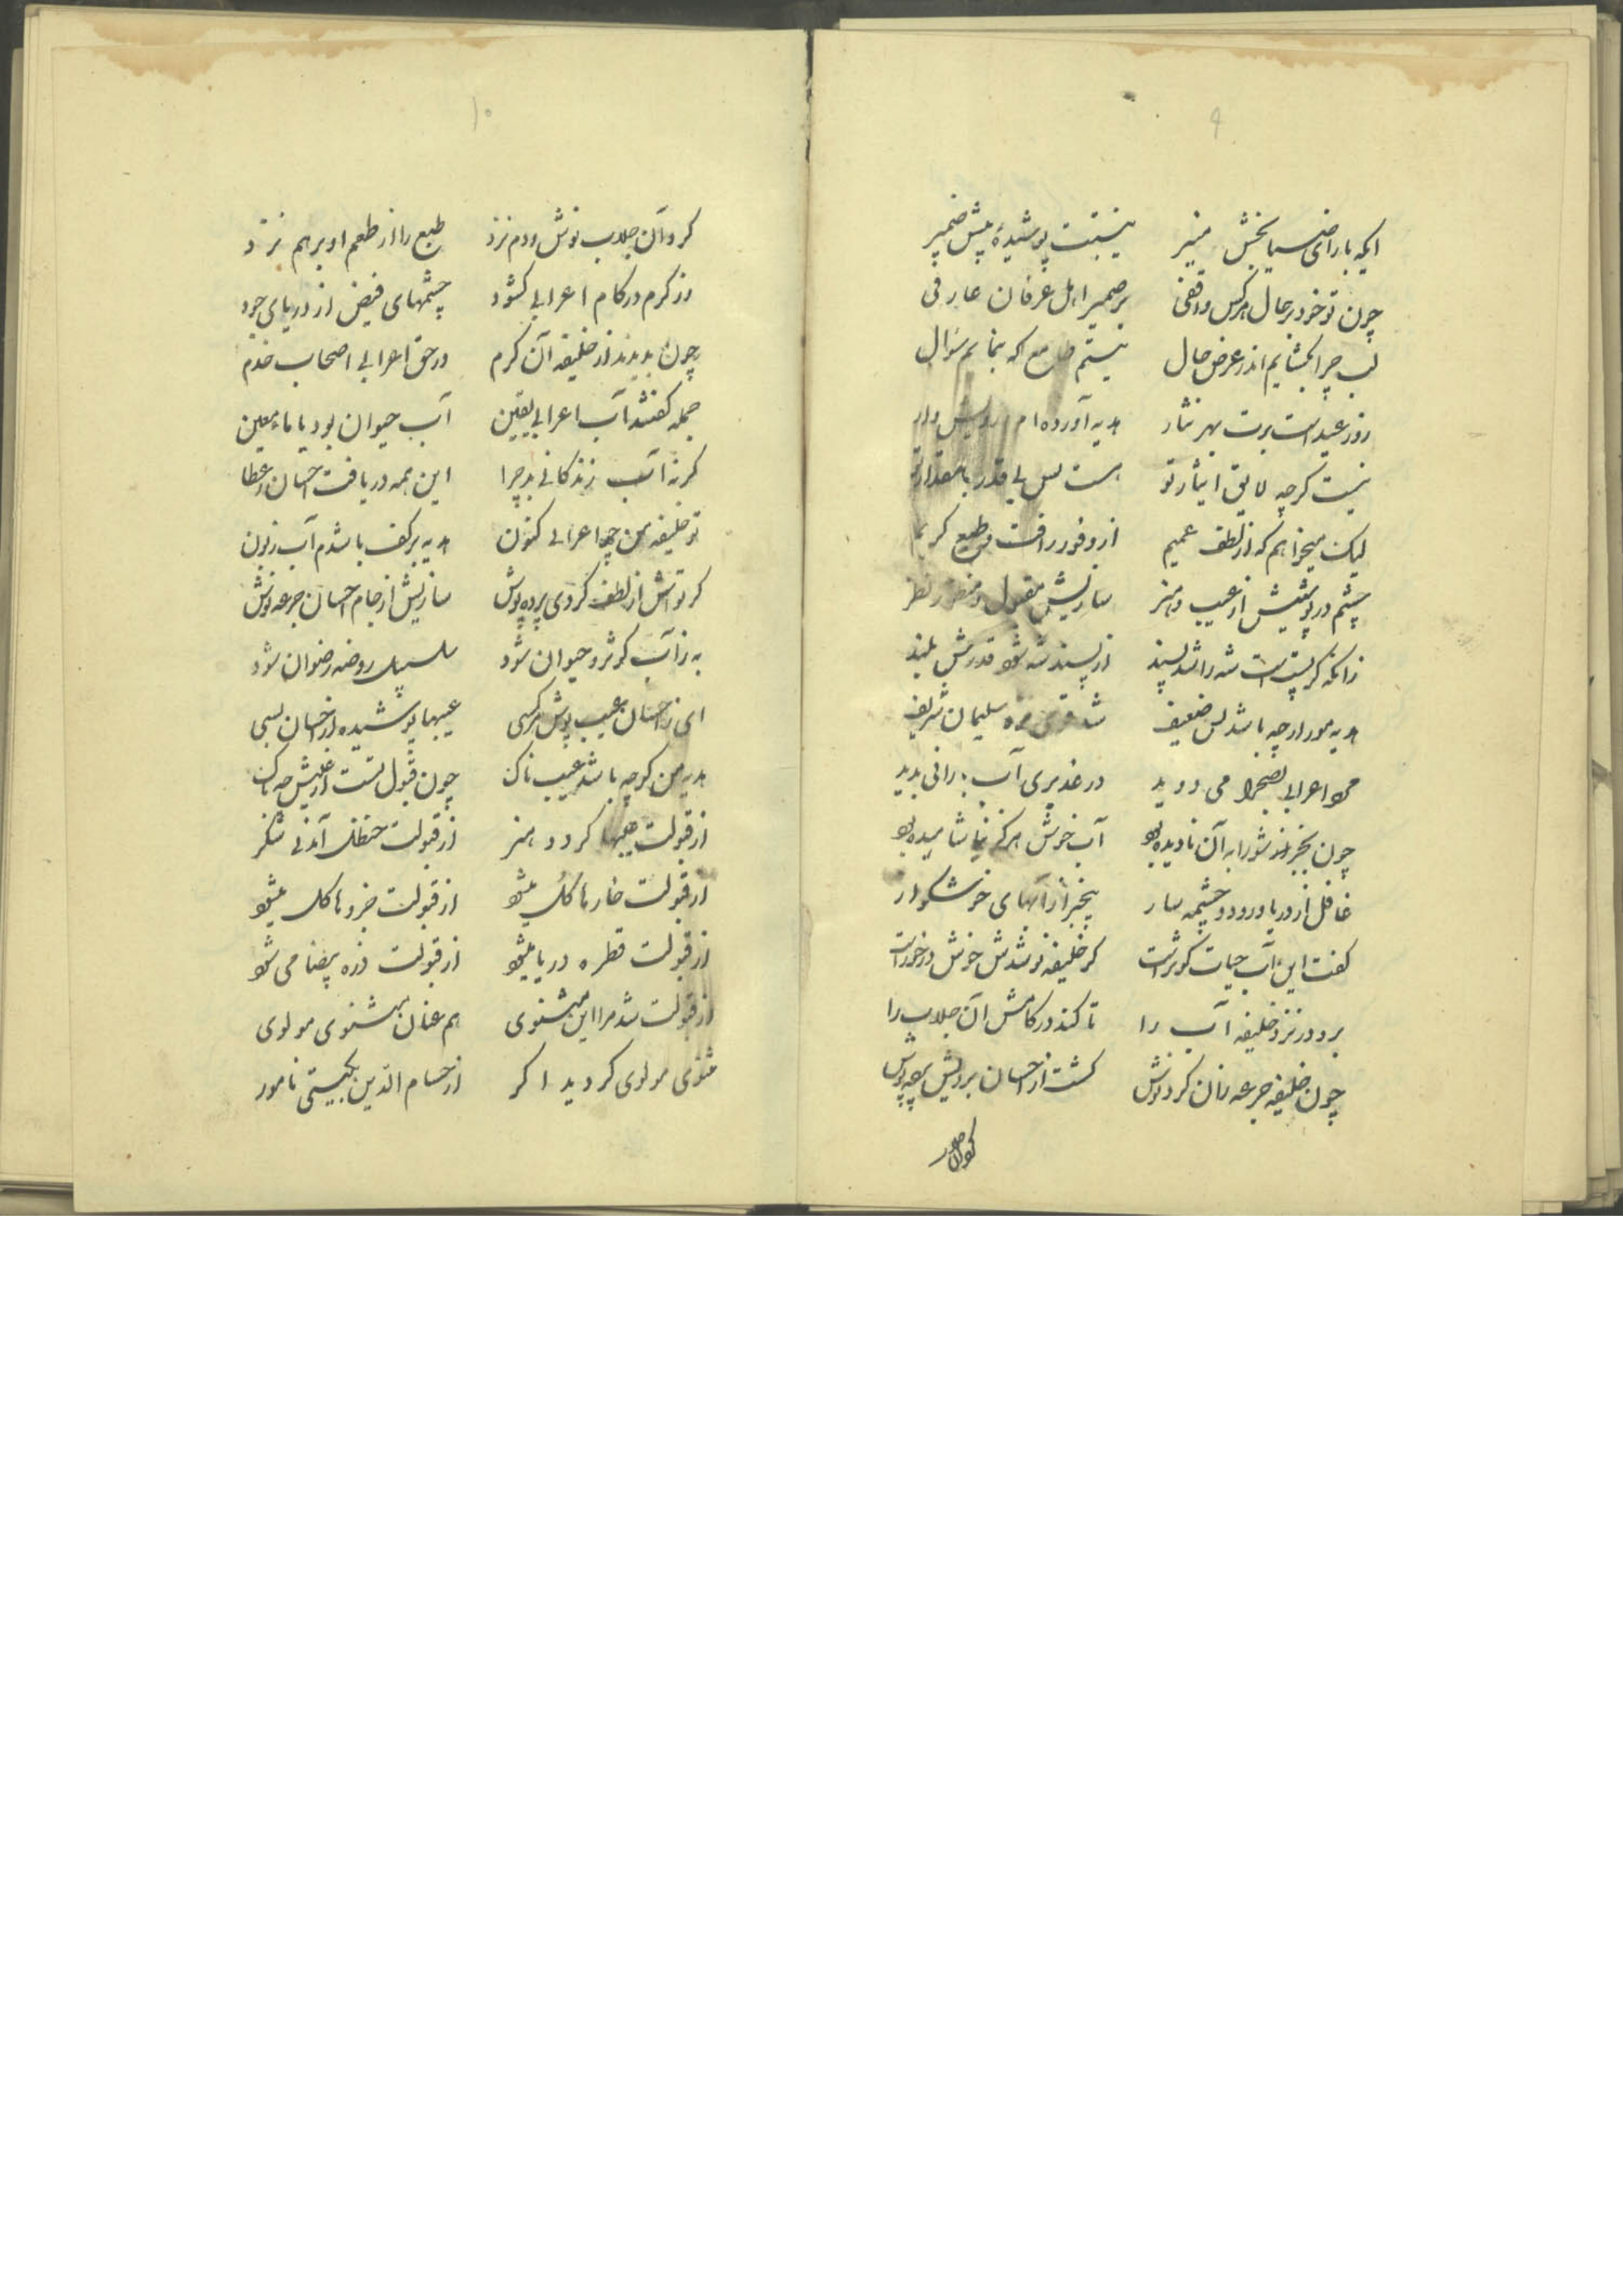 ۹
ایکه با رای ضیا بخش منیر نیست پوشیده به پیش ضمیر
چون تو خود بر حال هر کس واقفی بر ضمیر اهل عرفان عارفی
لب چرا بکشایم اندر عرض حال نیستم طامع که بنمایم سؤال
روز عید است برت بهر نثار هدیه آورده‌ام درویش وار
نیست کرچه لایق ایثار تو هست بس بی قدر با مقدار تو
لیک میخواهم که از لطف عمیم از وفور رافت و طبع کریم
چشم در پوشیش از عیب و هنر سازیش مقبول و منظور نظر
زانکه کر پست است شه را شد پسند از پسند شه شود قدرش بلند
هدیه مور ار چه باشد بس ضعیف شد سلیمان شریف
اعرابی بصحرا می دوید در غدیری آب بارانی بدید
چون بجز شورابه آن نادیده بود آب خوش هرکز نیاشامیده بود
غافل از دریا و رود و چشمه سار بیخبر از آبهای خوشکوار
کفت این آب حیات کوثر است کر خلیفه نوشدش خوش در خور است
برد در نزد خلیفه آب را تا کند در کامش آن جلاب را
چون خلیفه جرعه زان کرد نوش کشت از احسان برویش پرده پوش
کرد آن جلاب
۱۰
کرد آن جلاب نوش و دم نزد طبع را از طعم او برهم نزد
وز کرم در کام اعرابی کشود چشمهای فیض از دریای جود
چون بدیدند از خلیفه آن کرم در حق اعرابی اصحاب خدم
جمله کفتند آب اعرابی یقین آب حیوان بود یا ماء معین
کرنه آب زندکانی بد چرا این همه دریافت احسان و عطا
تو خلیفه من چو اعرابی کنون هدیه بر کف باشدم آب زبون
کر تواش از لطف کردی پرده پوش سازیش از جام احسان جرعه نوش
به ز آب کوثر و حیوان شود سلسبیل روضه رضوان شود
ای ز احسان عیب پوش هر کسی عیبها پوشیده از خسان بسی
هدیه من کرچه باشد عیب ناک چون قبول تست از عیبش چه باک
از قبولت عیبها کردد هنر از قبولت حنظل آید نی شکر
از قبولت خارها کل میشود از قبولت جزوها کل میشود
از قبولت قطره دریا میشود از قبولت ذره بیضا می شود
از قبولت شد مرا این مثنوی هم عنان مثنوی مولوی
مثنوی مولوی کردید اکر از حسام الدین بکیتی نامور